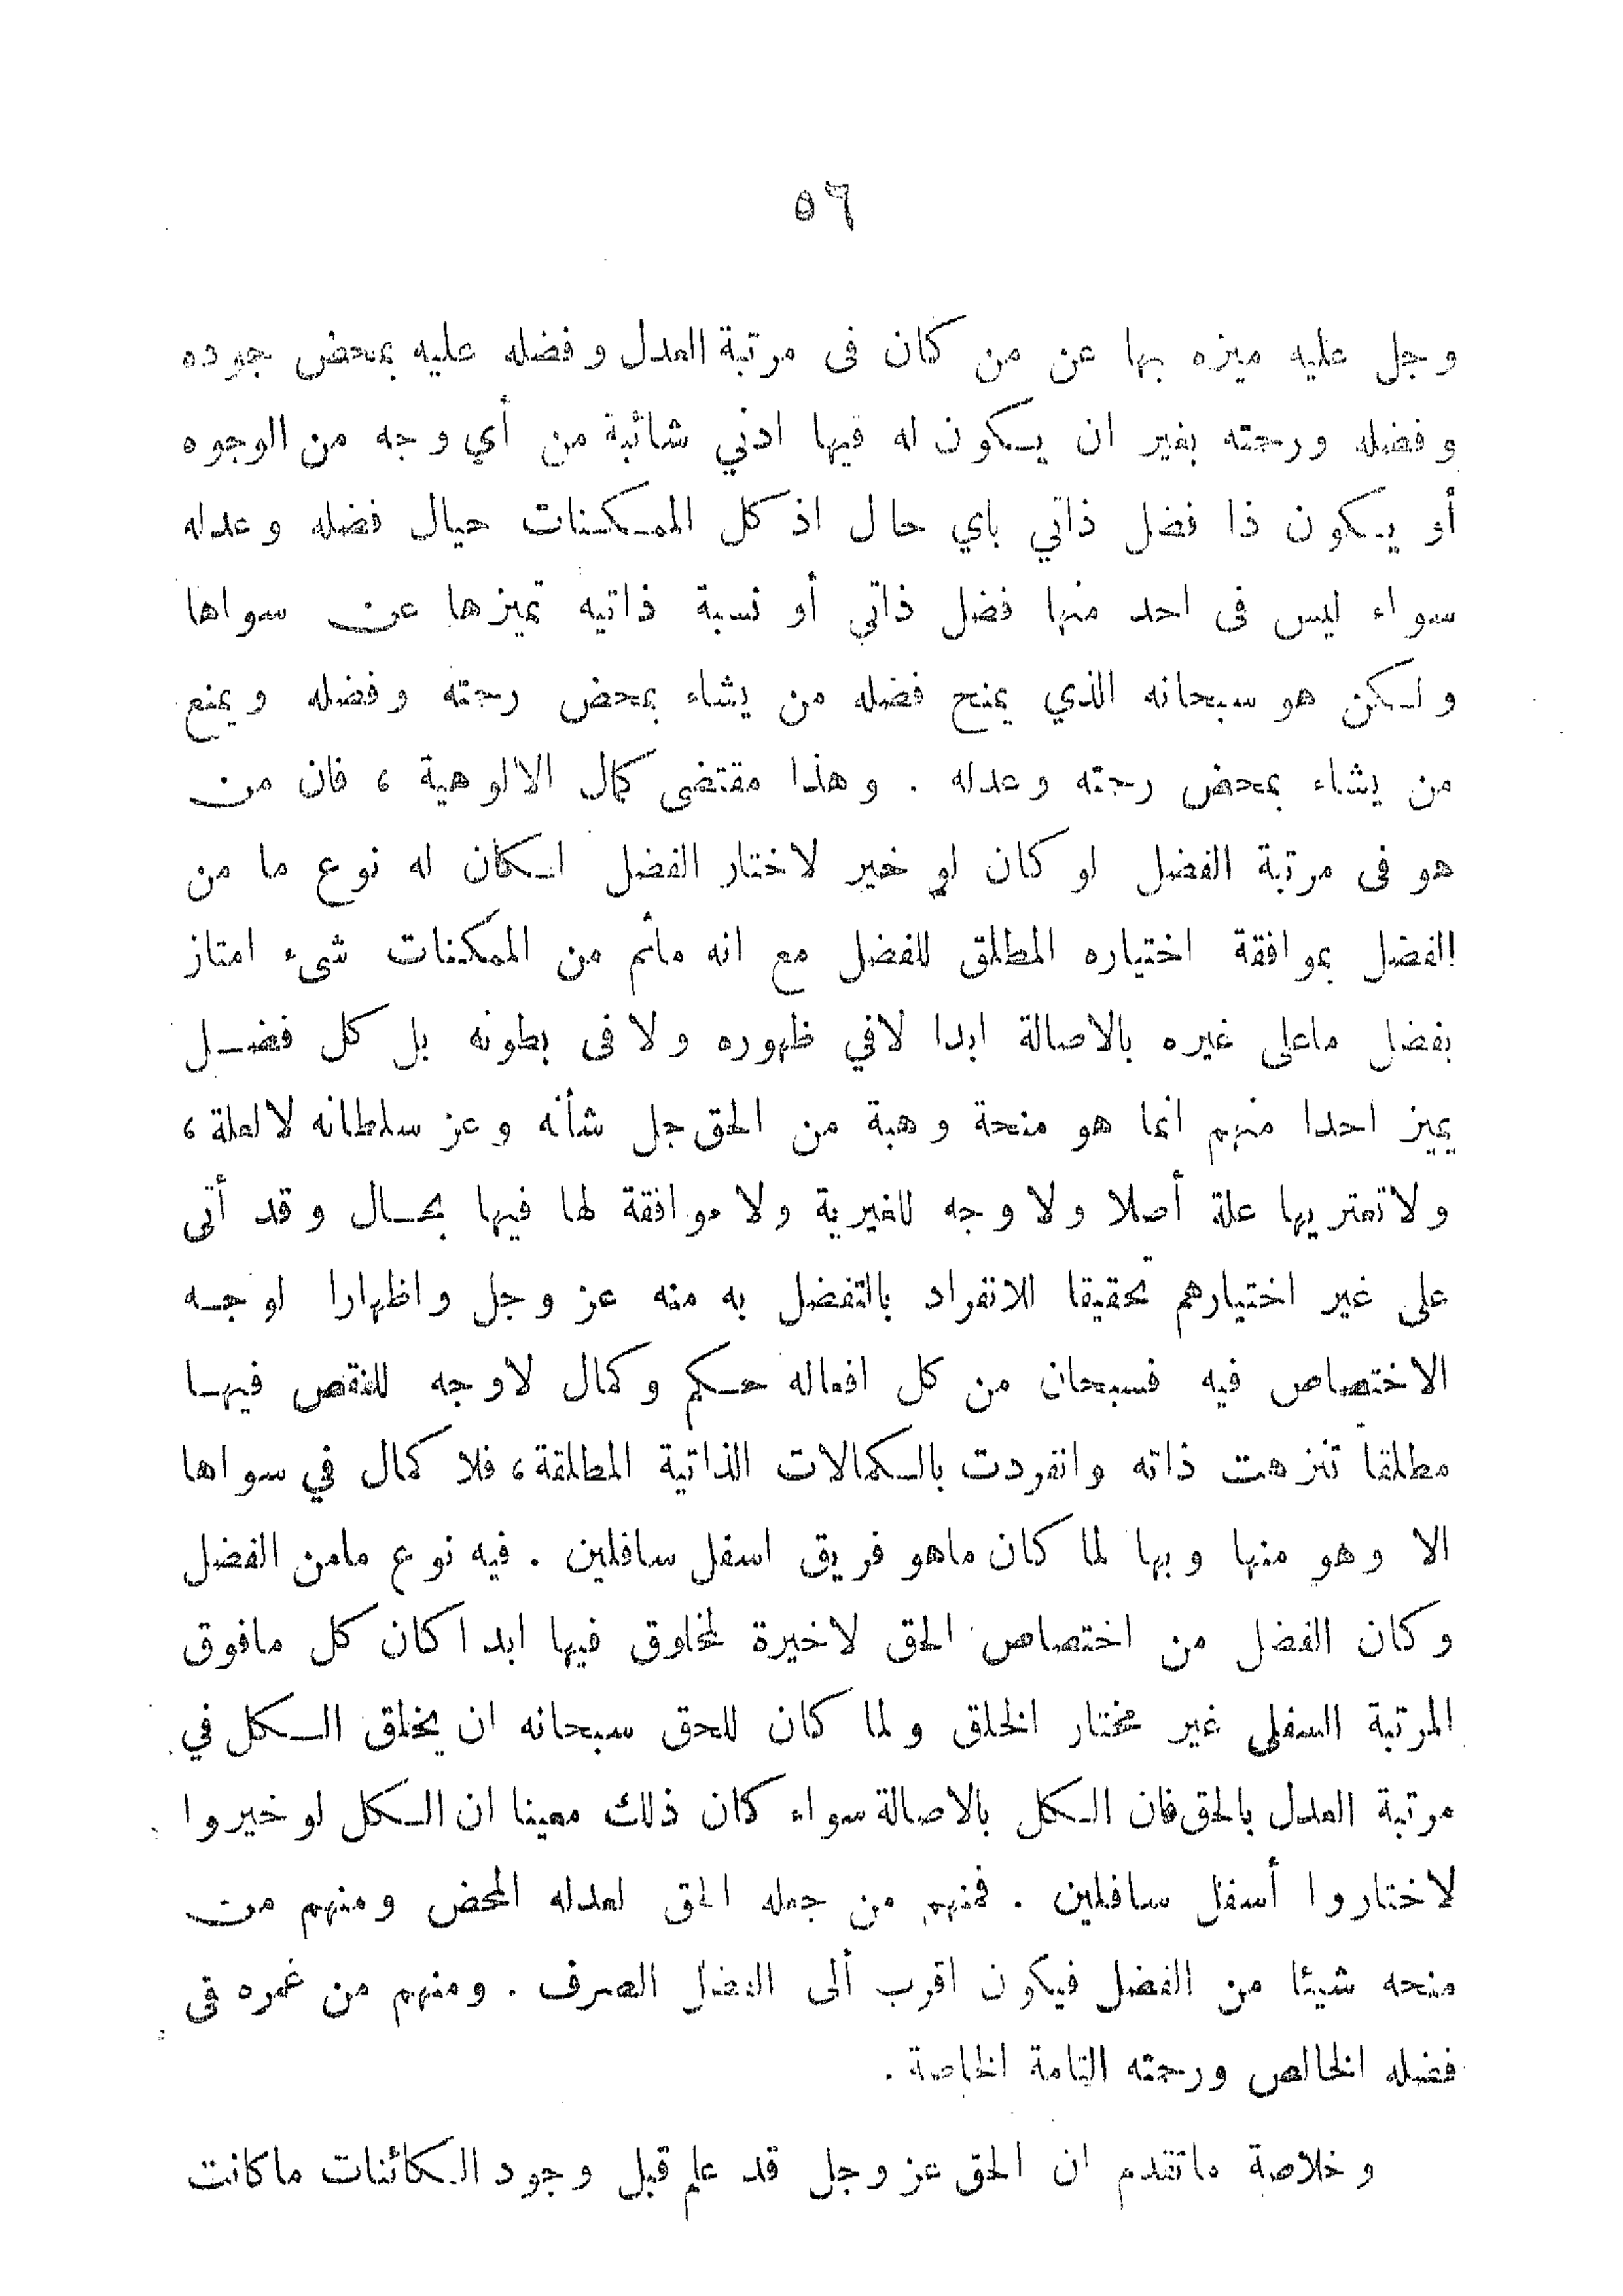 ٥٦
وجل عليه ميزه بها عن من كان فى مرتبة العدل وفضله عليه بمحض جوده
وفضله ورحمته بغير ان يكون له فيها ادني شائبة من أي وجه من الوجوه
أو يكون ذا فضل ذاتي باي حال اذ كل الممكنات حيال فضله وعدله
سواء ليس فى احد منها فضل ذاتي أو نسبة ذاتيه تميزها عن سواها
ولكن هو سبحانه الذي يمنح فضله من يشاء بمحض رحمته وفضله ويمنع
من يشاء بمحض رحمته وعدله . وهذا مقتضى كمال الالوهية ، فان من
هو فى مرتبة الفضل لو كان لو خير لاختار الفضل لكان له نوع ما من
الفضل بموافقة اختياره المطلق للفضل مع انه ماثم من الممكنات شىء امتاز
بفضل ماعلى غيره بالاصالة ابدا لافي ظهوره ولا فى بطونه بل كل فضل
يميز احدا منهم انما هو منحة وهبة من الحق جل شأنه وعز سلطانه لا لعلة ،
ولا تعتريها علة أصلا ولا وجه للغيرية ولا موافقة لها فيها بحال وقد أتى
على غير اختيارهم تحقيقا للانفراد بالتفضل به منه عز وجل واظهارا لوجه
الاختصاص فيه فسبحان من كل افعاله حكم وكمال لاوجه للنقص فيها
مطلقا تنزهت ذاته وانفردت بالكمالات الذاتية المطلقة ، فلا كمال في سواها
الا وهو منها وبها لما كان ماهو فريق اسفل سافلين . فيه نوع مامن الفضل
وكان الفضل من اختصاص الحق لاخيرة لمخلوق فيها ابدا كان كل مافوق
المرتبة السفلى غير مختار الخلق ولما كان للحق سبحانه ان يخلق الكل في
مرتبة العدل بالحق فان الكل بالاصالة سواء كان ذلك معينا ان الكل لو خيروا
لاختاروا أسفل سافلين . فمنهم من جعله الحق لعدله المحض ومنهم من
منحه شيئا من الفضل فيكون اقرب ألى الفضل الصرف . ومنهم من غمره فى
فضله الخالص ورحمته التامة الخاصة .
وخلاصة ماتقدم ان الحق عز وجل قد علم قبل وجود الكائنات ماكانت